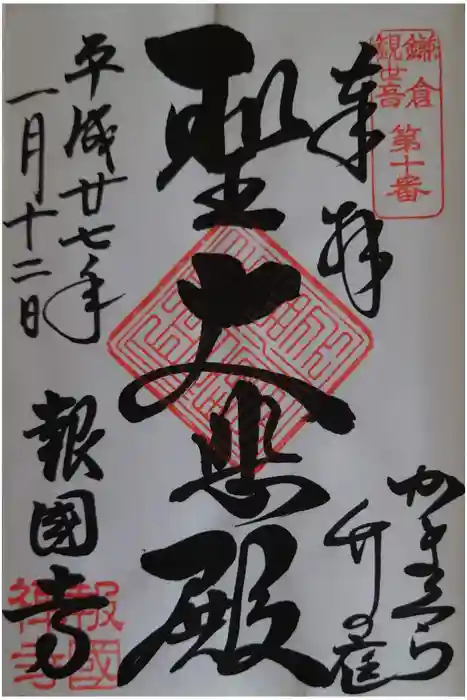 鎌倉
観世音
第十番
奉拝
かまくら
竹の庭
聖大悲殿
平成廿七年
一月十二日
報國寺
報國
禪寺